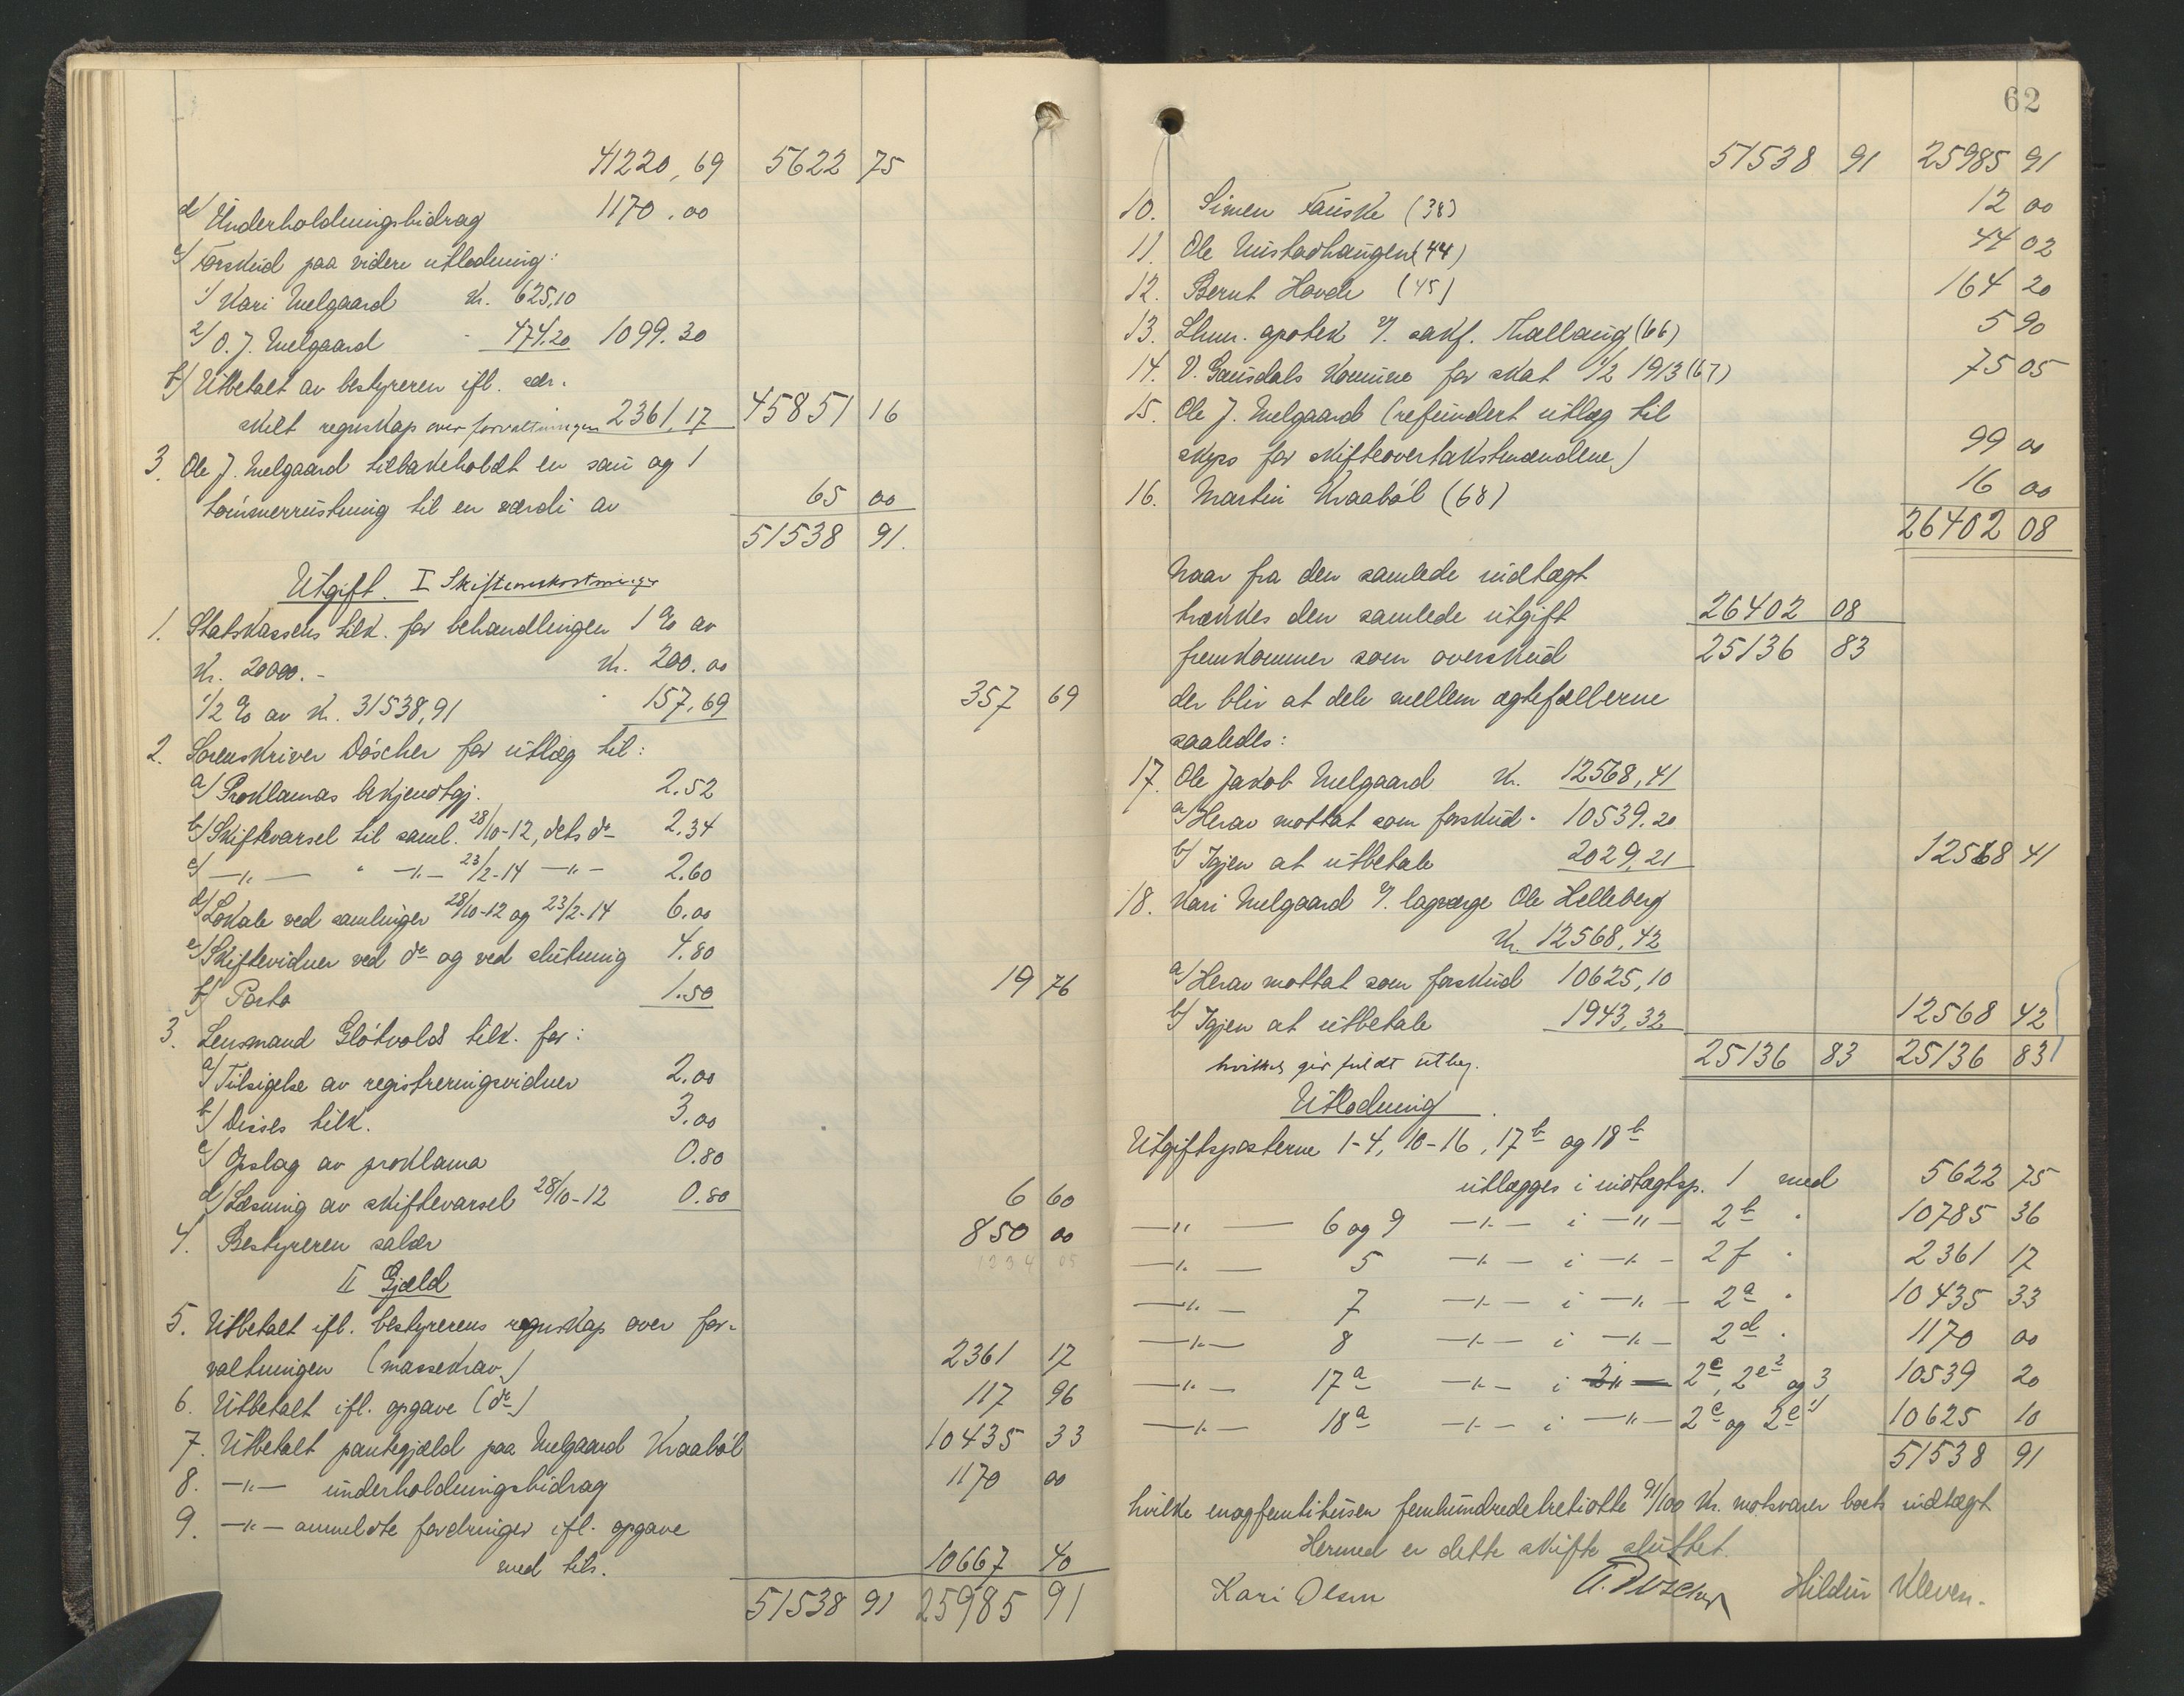 41220,69 5622 75
d/ Underholdningsbidrag 1170.00
e/ Forskud paa videre utlodning:
1/ Kari Melgaard Kr. 625,10
2/ O. J. Melgaard - 474.20 1099.30
f/ Utbetalt av bestyreren ifl. sær-
skilt regnskap over forvaltningen 2361,17 45851 16
3. Ole J. Melgaard tilbakeholdt en sau og 1
tømmerrustning til en værdi av 65 00
51538 91.
Utgift. I Skifteomkostninger
1. Statskassens tilk. for behandlingen 1 % av
Kr. 20000.- Kr. 200.00
1/2 % av Kr. 31538,91 - 157,69 357 69
2. Sorenskriver Döscher for utlæg til:
a/ Proklamas bekjendtgj. 2.52
b/ Skiftevarsel til saml. 28/10-12, dets do 2.34
c/ —"— " —"— 23/2-14 —"— 2.60
d/ Lokale ved samlinger 28/10-12 og 23/2-14 6.00
e/ Skiftevidner ved do og ved slutning 4.80
f/ Porto 1.50 19 76
3. Lensmand Gløtvold tilk. for:
a/ Tilsigelse av registreringsvidner 2.00
b/ Disses tilk. 3.00
c/ Opslag av proklama 0.80
d/ Læsning av skiftevarsel 28/10-12 0.80 6 60
4. Bestyreren salær 850 00
1234 05
II Gjæld
5. Utbetalt ifl. bestyrerens regnskap over for-
valtningen (massekrav) 2361 17
6. Utbetalt ifl. opgave (do) 117 96
7. Utbetalt pantegjæld paa Melgaard Kraabøl 10435 33
8. —"— underholdningsbidrag 1170 00
9. —"— anmeldte fordringer ifl. opgave
med till. 10667 40
51538 91 25985 91
62
51538 91 25985 91
10. Simen Fauske (38) 12 00
11. Ole Mustadhaugen (44) 44 02
12. Bernt Hovde (45) 164 20
13. Lhmr. apotek v/. sakf. Thallaug (66) 5 90
14. V. Gausdals Kommune for skat 1/2 1913 (67) 75 05
15. Ole J. Melgaard (refundert utlæg til
skyss for skifteovertakstmændene) 99 00
16. Martin Kraabøl (68) 16 00
26402 08
Naar fra den samlede indtægt
trækkes den samlede utgift 26402 08
fremkommer som overskud 25136 83
der blir at dele mellem ægtefællerne
saaledes:
17. Ole Jakob Melgaard Kr. 12568,41
a/ Herav mottat som forskud - 10539.20
b/ Igjen at utbetale 2029,21 12568 41
18. Kari Melgaard v/. lagværge Ole Helleberg
Kr. 12568,42
a/ Herav mottat som forskud 10625,10
b/ Igjen at utbetale 1943,32 12568 42
hvilket gir fuldt utlæg. 25136 83 25136 83
Utlodning.
Utgiftsposterne 1-4, 10-16, 17b og 18b
utlægges i indtægtsp. 1 med 5622 75
—"— 6 og 9 —"— i —"— 2b - 10785 36
—"— 5 —"— i —"— 2f - 2361 17
—"— 7 —"— i —"— 2a - 10435 33
—"— 8 —"— i —"— 2d - 1170 00
—"— 17a —"— i 2c, 2e2 og 3 10539 20
—"— 18a —"— i —"— 2c og 2e1/ 10625 10
51538 91
hvilke enogfemtitusen femhundredetretiotte 91/100 Kr. motsvarer boets indtægt
Hermed er dette skifte sluttet.
Kari Olsen A. Döscher Hildur Kleven.